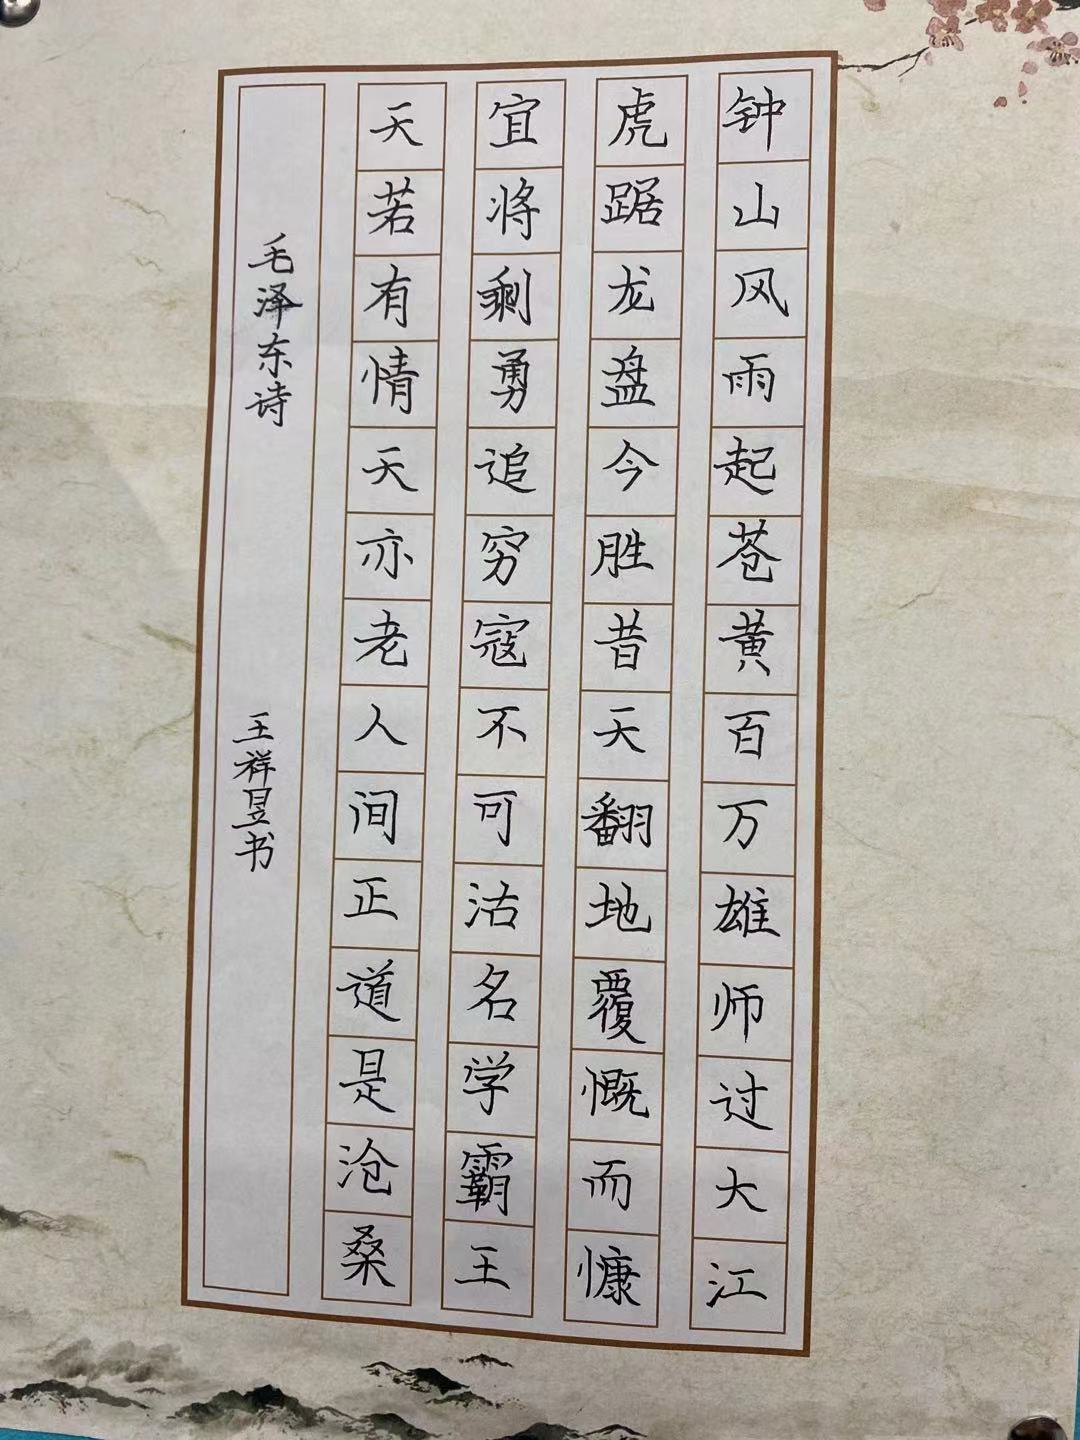 钟山风雨起苍黄百万雄师过大江
虎踞龙盘今胜昔天翻地覆慨而慷
宜将剩勇追穷寇不可沽名学霸王
天若有情天亦老人间正道是沧桑
毛泽东诗
王祥昱书